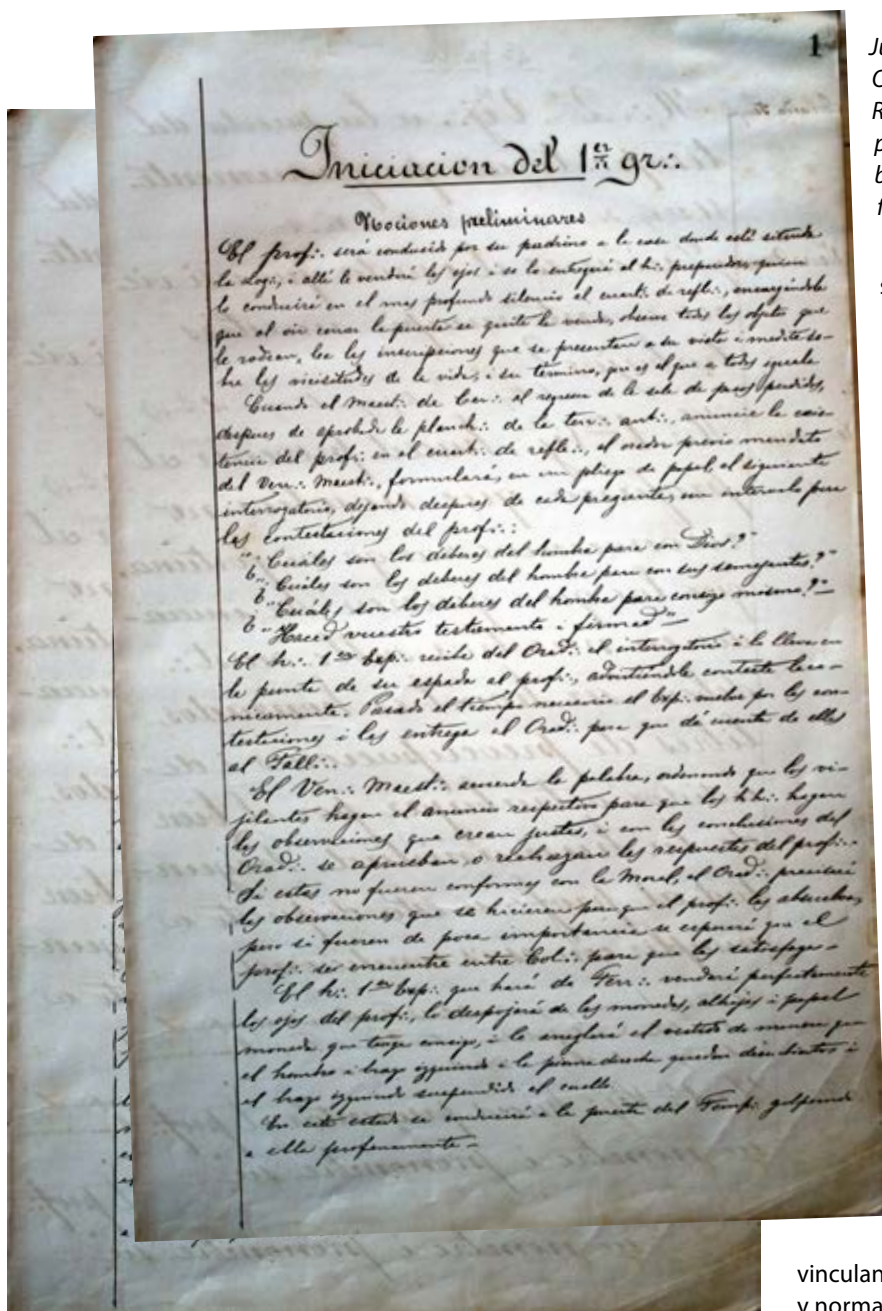 1
Iniciacion del 1er gr.·.
Nociones preliminares
El prof.·. será conducido por su padrino a la casa donde esté situada
la Log.·. i allí le vendará los ojos i se lo entregará al h.·. preparador, quien
lo conducirá en el mas profundo silencio al cuart.·. de refle.·., encargándole
que al oir cerrar la puerta se quite la venda, observe todos los objetos que
le rodean, lea las inscripciones que se presentan a su vista i medite so-
bre las vicisitudes de la vida, i su término, que es el que a todos iguala
Cuando el Maest.·. de Cer.·. al regreso de la sala de pasos perdidos,
despues de aprobada la planch.·. de la ten.·. ant.·., anuncie la exis-
tencia del prof.·. en el cuart.·. de refle.·., el orador previo mandato
del Ven.·. Maest.·., formulará, en un pliego de papel el siguiente
interrogatorio, dejando despues de cada pregunta, un intervalo para
las contestaciones del prof.·.:
"¿Cuáles son los deberes del hombre para con Dios?"
"¿Cuáles son los deberes del hombre para con sus semejantes?"
"¿Cuáles son los deberes del hombre para consigo mismo?"
"Haced vuestro testamento i firmad"
El h.·. 1er Exp.·. recibe del Orad.·. el interrogatorio i lo lleva en
la punta de su espada al prof.·., advirtiéndole conteste laco-
nicamente. Pasado el tiempo necesario el Exp.·. vuelve por las con-
testaciones i las entrega al Orad.·. para que dé cuenta de ellas
al Tall.·.
El Ven.·. Maest.·. acuerda la palabra, ordenando que los vi-
jilantes hagan el anuncio respectivo para que los hh.·. hagan
las observaciones que crean justas, i con las conclusiones del
Orad.·. se aprueban o rechazan las respuestas del prof.·.
Si estas no fueren conformes con la Moral, el Orad.·. precisará
las observaciones que se hicieren para que el prof.·. las absuelva,
pero si fueren de poca importancia se esperará que el
prof.·. se encuentre entre Col.·. para que las satisfaga-
El h.·. 1er Exp.·. que hará de Terr.·. vendará perfectamente
los ojos del prof.·., lo despojará de las monedas, alhajas i papel
moneda que tenga consigo, i le arreglará el vestido de manera que
el hombro i brazo izquierdo i la pierna derecha queden descubiertos i
el brazo izquierdo suspendido al cuello.
En este estado se conducirá a la puerta del Templ.·. golpeando
a ella profanamente-
vinculan
y norma